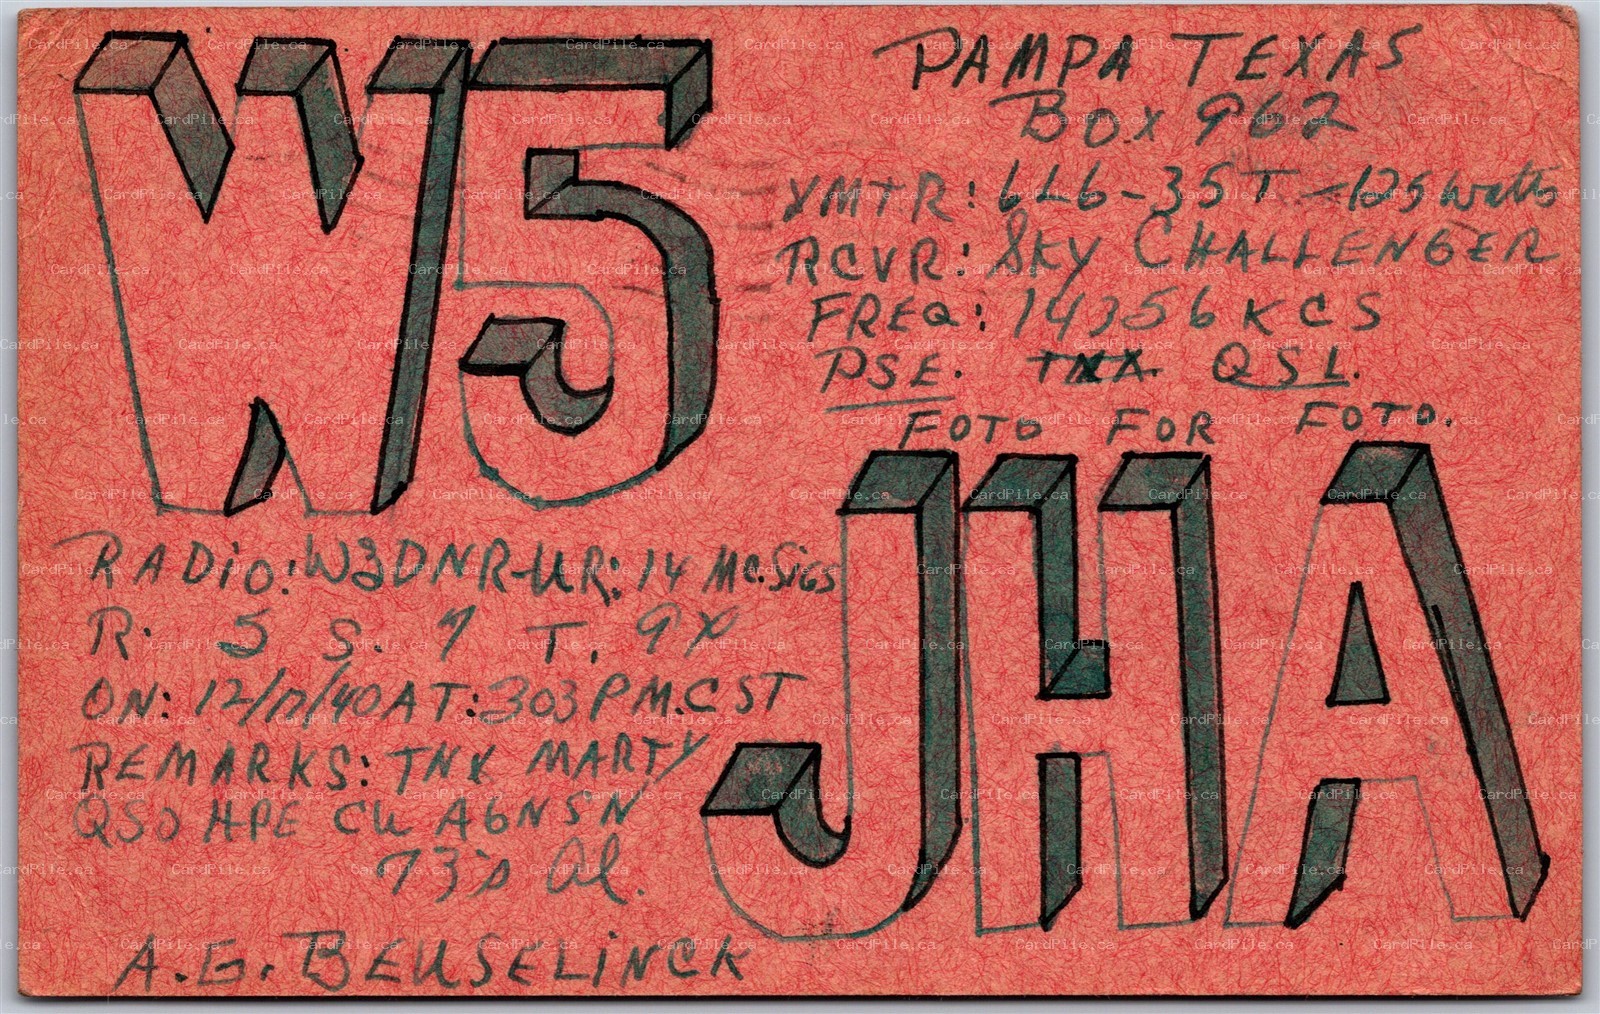 W5
PAMPA TEXAS
BOX 962
XMTR: 6L6-35T - 125 Watts
RCVR: SKY CHALLENGER
FREQ: 14356 KCS
PSE. TNX QSL.
FOTO FOR FOTO.
JHA
RADIO: W3DNR-UR: 14 Mc. SiGS
R. 5 S. 7 T. 9X
ON: 12/17/40 AT: 303 PM. CST
REMARKS: TNX MARTY
QSO HPE CU AGN SN
73's Al.
A. G. BEUSELiNCK
CardPile.ca